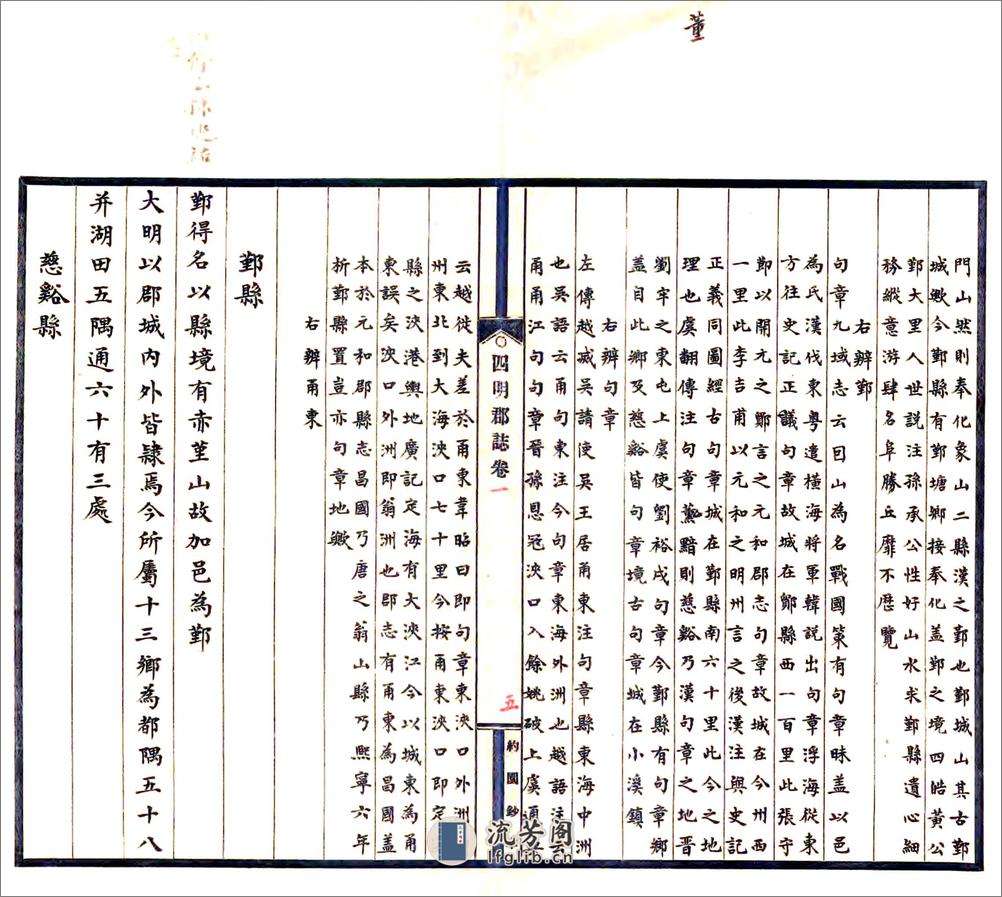 董
門山然則奉化象山二縣漢之鄞也鄞城山其古鄞
城歟今鄞縣有鄞塘鄉接奉化蓋鄞之境四皓黃公
鄞大里人世說注孫承公性好山水求鄞縣遺心細
務縱意游肆名阜勝丘靡不歷覽
右辨鄞
句章九域志云因山為名戰國策有句章昧蓋以邑
為氏漢伐東粵遣橫海將軍韓說出句章浮海從東
方往史記正議句章故城在鄮縣西一百里此張守
節以開元之鄮言之元和郡志句章故城在今州西
一里此李吉甫以元和之明州言之後漢注與史記
正義同圖經古句章城在鄞縣南六十里此今之地
理也虞翻傳注句章董黯則慈谿乃漢句章之地晉
劉牢之東屯上虞使劉裕戍句章今鄞縣有句章鄉
蓋自此鄉及慈谿皆句章境古句章城在小溪鎮
右辨句章
左傳越滅吳請使吳王居甬東注句章縣東海中洲
也吳語云甬句東注今句章東海外洲也越語注云
甬甬江句句章晉孫恩冦浹口入餘姚破上虞通
四明郡誌卷一
五
約園鈔
云越徙夫差於甬東韋昭曰即句章東浹口外洲
州東北到大海浹口七十里今按甬東浹口即定
縣之浹港輿地廣記定海有大浹江今以城東為甬
東誤矣浹口外洲即翁洲也郡志有甬東為昌國蓋
本於元和郡縣志昌國乃唐之翁山縣乃熙寧六年
析鄞縣置豈亦句章地歟
右辨甬東
鄞縣
鄞得名以縣境有赤堇山故加邑為鄞
大明以郡城內外皆隸焉今所屬十三鄉為都隅五十八
并湖田五隅通六十有三處
慈谿縣
流芳阁
lfglib.cn